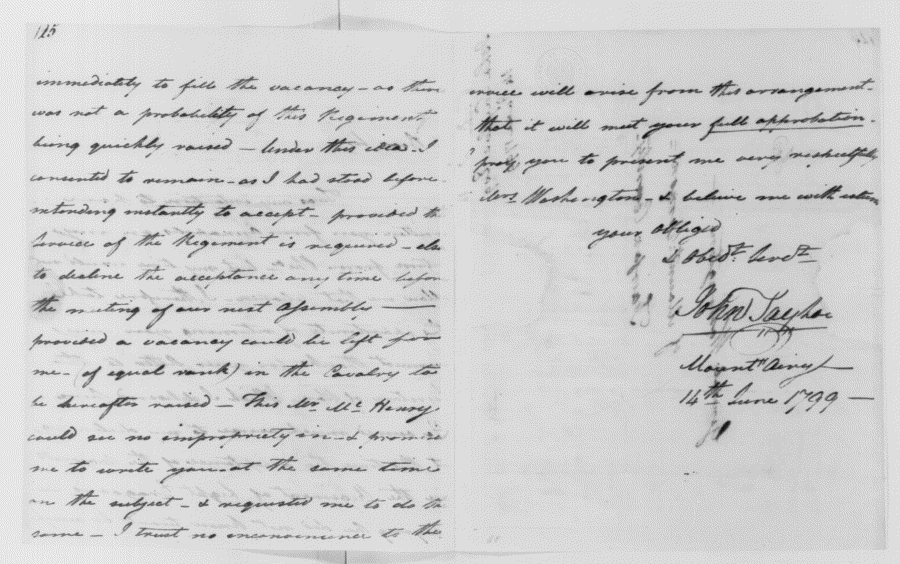 115
immediately to fill the vacancy - as there
was not a probability of this Regiment
being quickly raised - Under this idea I
consented to remain - as I had stood before
intending instantly to accept - provided the
Service of the Regiment is required - else
to decline the acceptance any time before
the meeting of our next Assembly —
provided a vacancy could be left for
me - (of equal rank) in the Cavalry to
be hereafter raised - This Mr. Mc. Henry
could see no impropriety in - & promised
me to write you at the same time
on the subject - & requested me to do the
same - I trust no inconvenience to the
service will arise from this arrangement -
that it will meet your full approbation -
I pray you to present me very respectfully
Mrs. Washington - & believe me with esteem
your Obliged
& Obedt. Servt.
John Tayloe
Mount Airy
14th June 1799 —